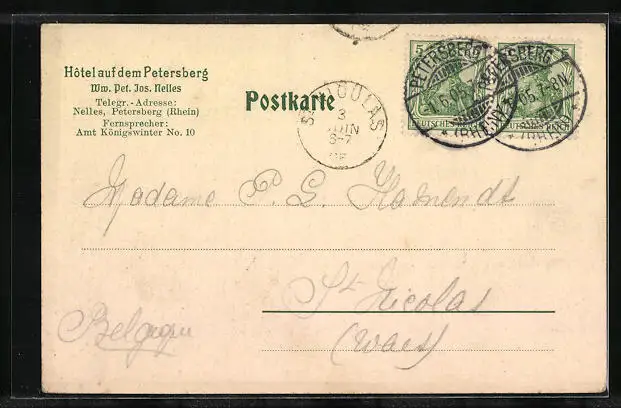 Hôtel auf dem Petersberg
Wm. Pet. Jos. Nelles
Telegr.-Adresse:
Nelles, Petersberg (Rhein)
Fernsprecher:
Amt Königswinter No. 10
Postkarte
ST NICOLAS
3
JUIN
5
DEUTSCHES REICH
PETERSBERG
1.6.05
* (RHEIN) *
5
DEUTSCHES REICH
PETERSBERG
05.7-8N.
* (RHEIN)
Madame P. G.
St Nicolas
(Waes)
Belgique